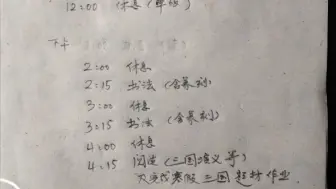 12:00 休息（午饭）
下午
2:00 休息
2:15 书法（含篆刻）
3:00 休息
3:15 书法（含篆刻）
4:00 休息
4:15 阅读（三国演义等）
及完成寒假三国 作业